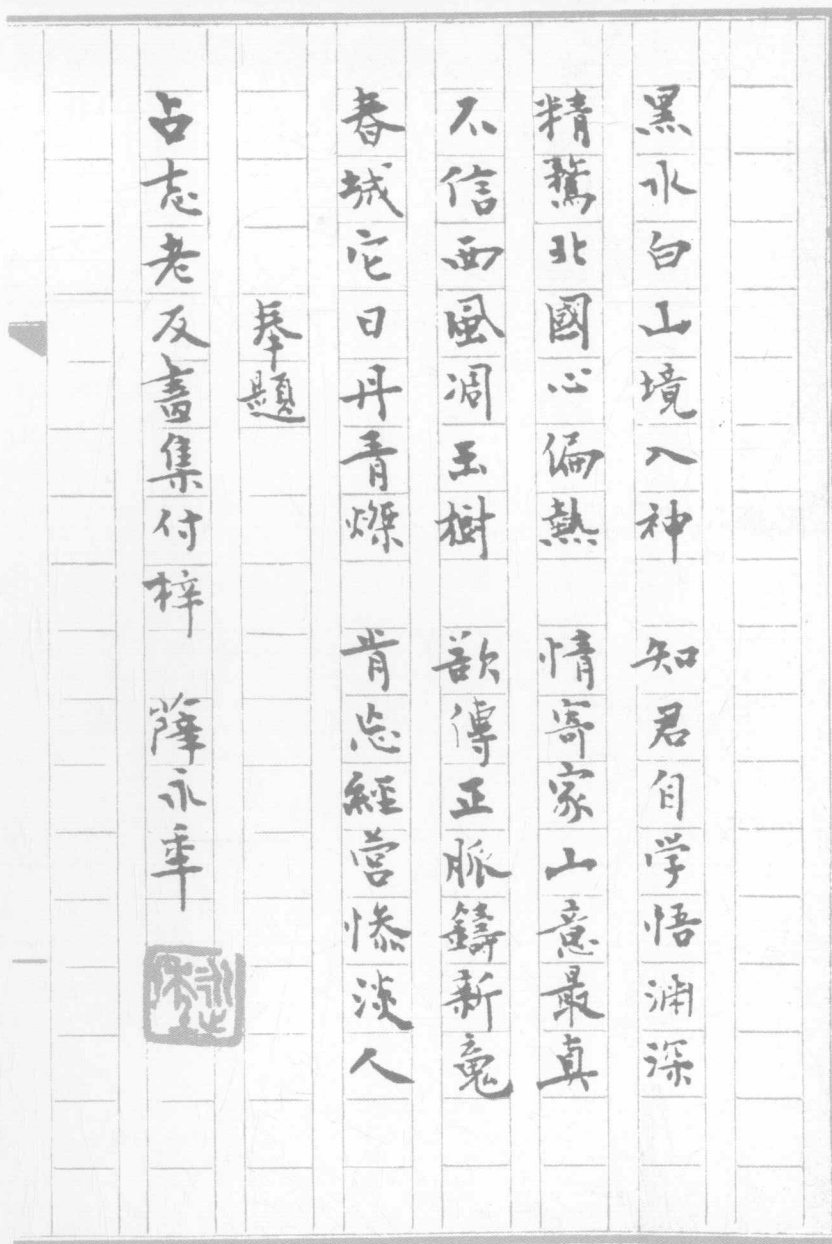 黑水白山境入神 知君自学悟渊深
精鶩北國心偏熱 情寄家山意最真
不信西風凋玉樹 欲傳正脈鑄新魂
春城它日丹青燦 肯忘經营慘淡人
奉題
占志老友畫集付梓 薛永年